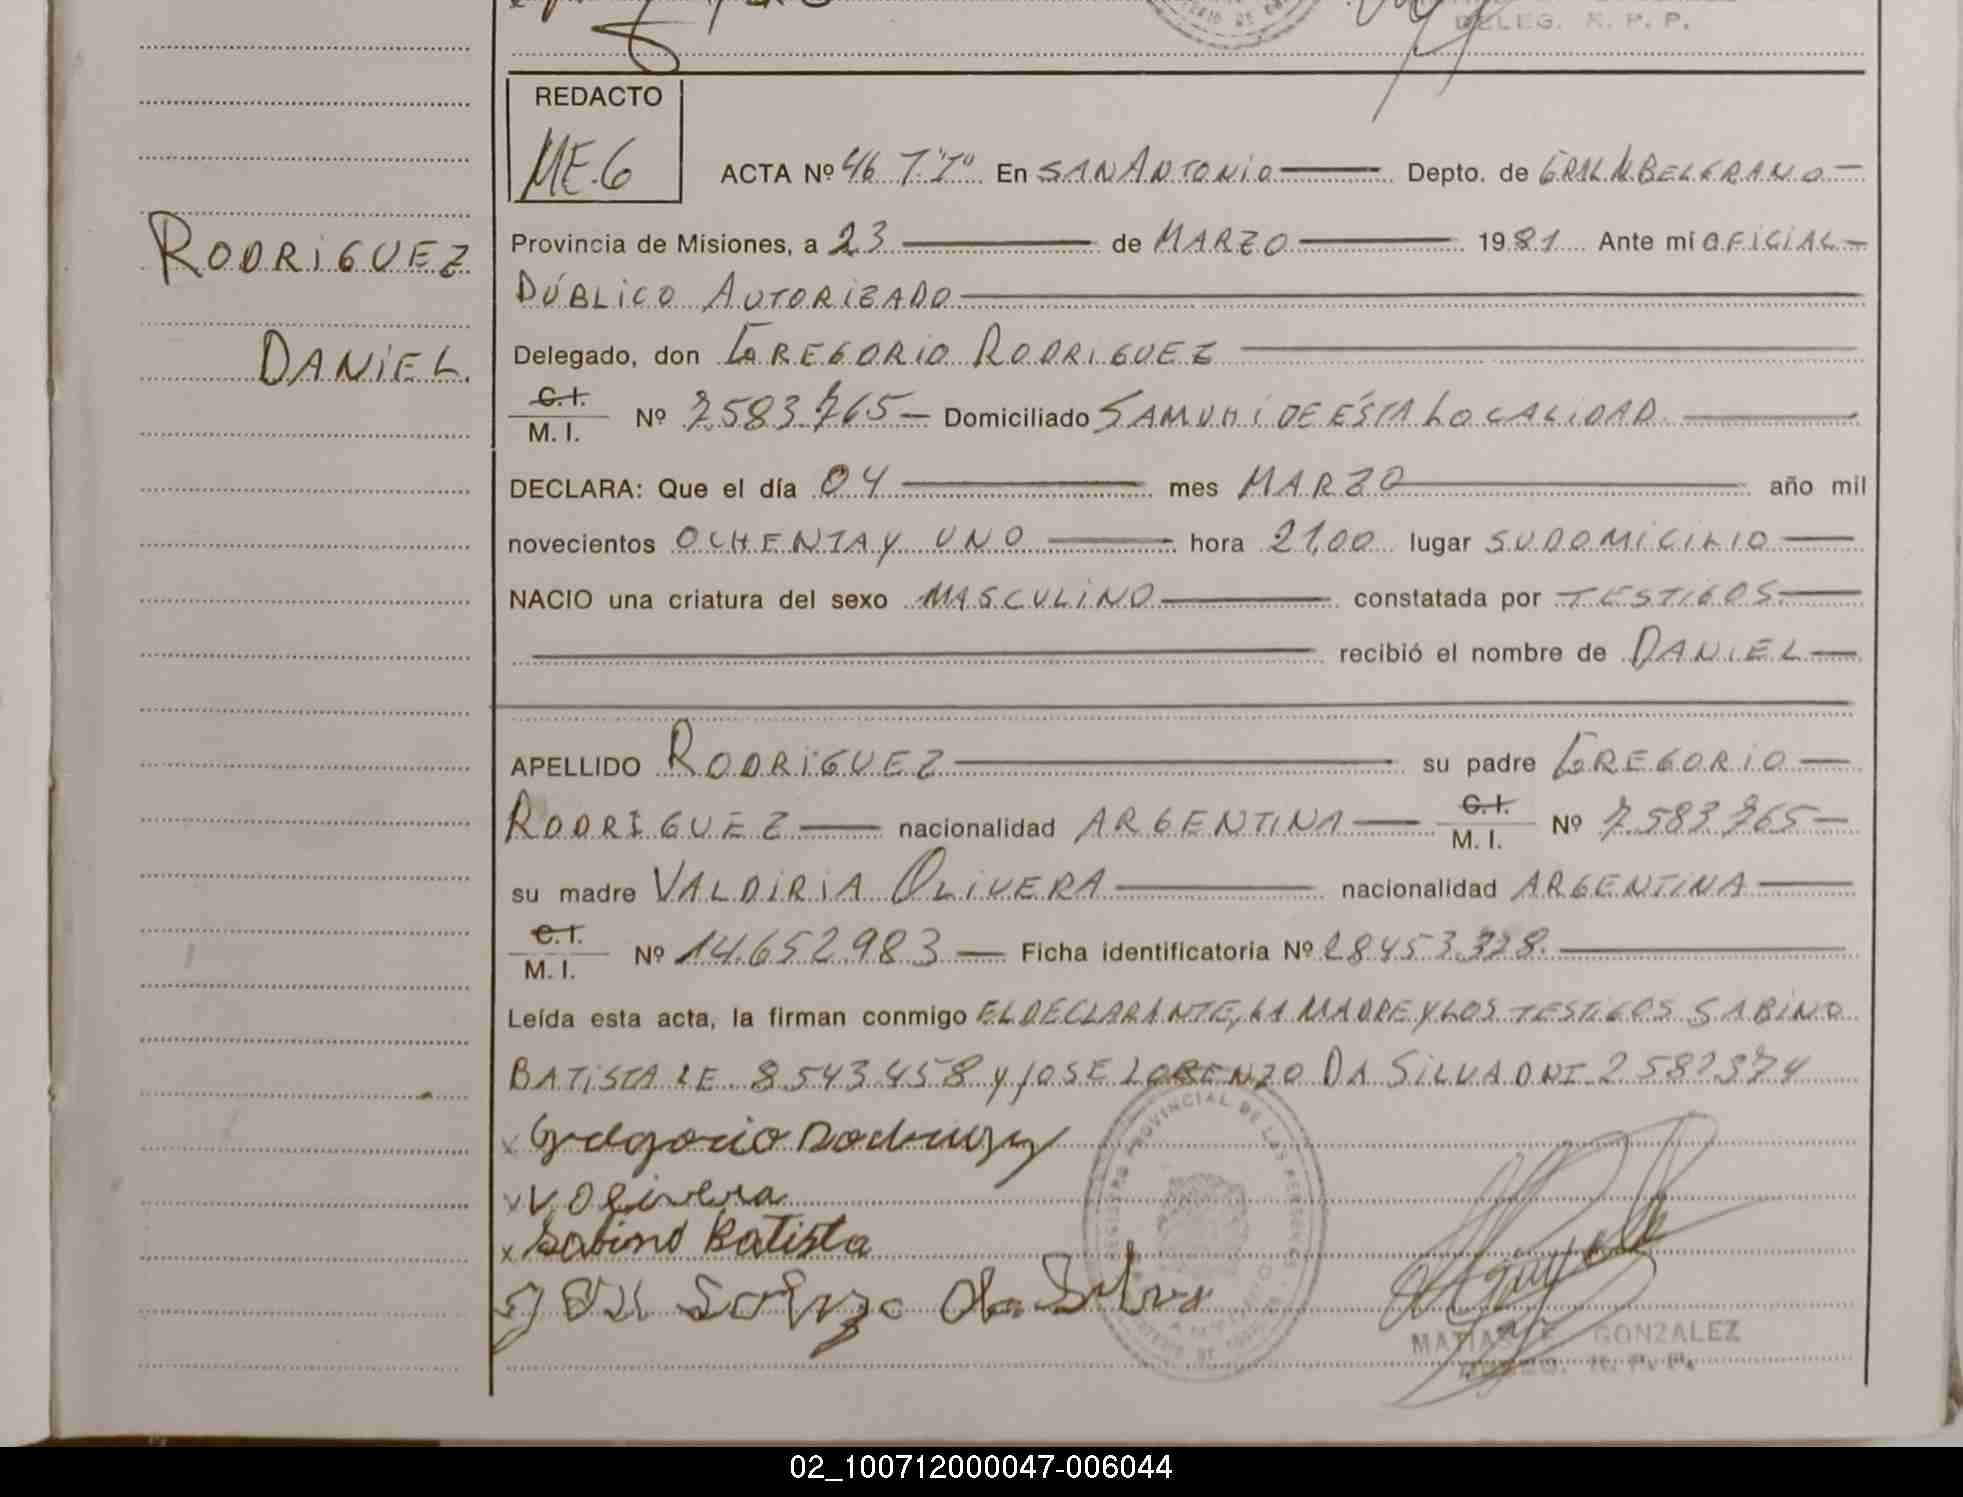 DELEG. R. P. P.
REDACTO
ME.G
ACTA Nº 46 T."I" En SAN ANTONIO Depto. de GRAL. M. BELGRANO
RODRIGUEZ
Provincia de Misiones, a 23 de MARZO 1981 Ante mí OFICIAL
PÚBLICO AUTORIZADO
DANIEL.
Delegado, don GREGORIO RODRIGUEZ
C.I. / M. I. Nº 7.583.765 Domiciliado SAMUHÍ DE ÉSTA LOCALIDAD
DECLARA: Que el día 04 mes MARZO año mil
novecientos OCHENTA Y UNO hora 21,00 lugar SU DOMICILIO
NACIO una criatura del sexo MASCULINO constatada por TESTIGOS
recibió el nombre de DANIEL
APELLIDO RODRIGUEZ su padre GREGORIO
RODRIGUEZ nacionalidad ARGENTINA C.I. / M. I. Nº 7.583.765
su madre VALDIRIA OLIVERA nacionalidad ARGENTINA
C.I. / M. I. Nº 14.652.983 Ficha identificatoria Nº 28453.328.
Leída esta acta, la firman conmigo EL DECLARANTE, LA MADRE Y LOS TESTIGOS SABINO
BATISTA LE 8.543.458 y JOSE LORENZO DA SILVA DNI 2582374
x Gregorio Rodriguez
x V. Olivera
x Sabino Batista
x José Lorenzo da Silva
REGISTRO PROVINCIAL DE LAS PERSONAS
MATIAS E. GONZALEZ
DELEG. R. P. P.
02_100712000047-006044